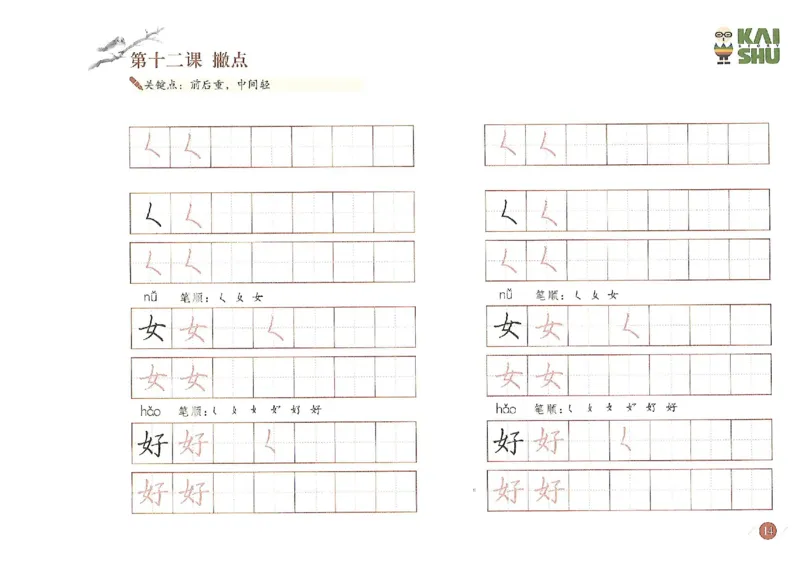 第十二课 撇点
关键点：前后重，中间轻
KAI
STORY
SHU
𡿨 𡿨
𡿨 𡿨
𡿨 𡿨
nǚ 笔顺：𡿨 女 女
女 女 𡿨
女 女
hǎo 笔顺：
好 好 𡿨
好 好
𡿨 𡿨
𡿨 𡿨
𡿨 𡿨
nǚ 笔顺：𡿨 女 女
女 女 𡿨
女 女
hǎo 笔顺：
好 好 𡿨
好 好
14